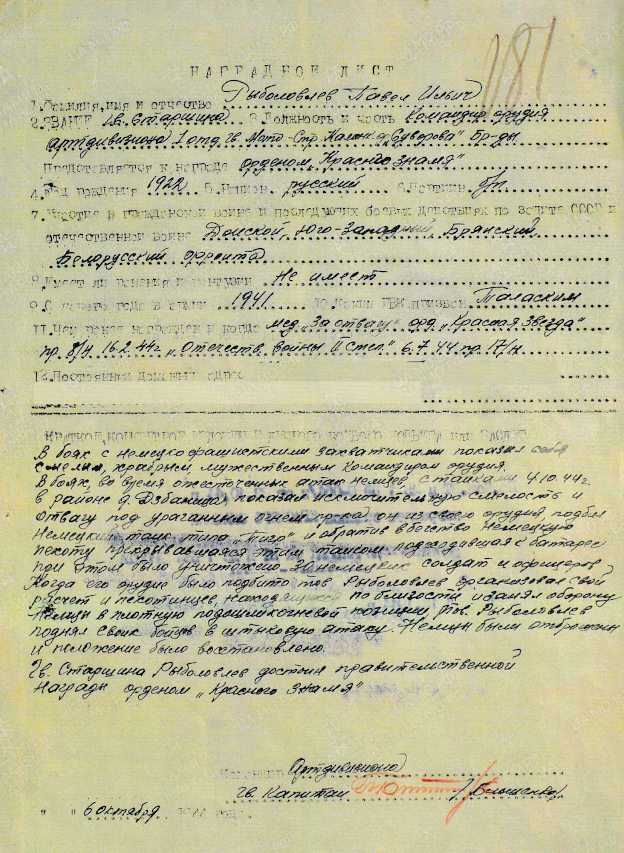 181
НАГРАДНОЙ ЛИСТ
1. Фамилия, имя и отчество Рыболовлев Павел Ильич
2. ЗВАНИЕ Гв. Старшина 3. Должность и часть Командир орудия
артдивизиона 1 отд. Гв. Мото-Стр. Калинк. о. „Суворова" Бр-ды
Представляется к награде орденом „Красное знамя"
4. Год рождения 1922 5. Национ. русский 6. Партийн. б/п
7. Участие в гражданской войне и последующих боевых действиях по защите СССР и
отечественной войне Донской, Юго-Западный, Брянский,
Белорусский фронта
8. Имеет ли ранения и контузии Не имеет
9. С какого года в армии 1941 10. Каким РВК призван Таласким
11. Чем ранее награжден и когда мед. „За отвагу" орд. „Красная Звезда"
пр. 8/н 16.2.44г. „Отечеств. войны II степ." 6.7.44 пр. 17/н
12. Постоянный домашний адрес
В боях с немецко фашистскими захватчиками показал себя
смелым, храбрым, мужественным командиром орудия.
В боях, во время ожесточенных атак немцев, с танками 4.10.44г.
в районе д. Дзбаница показал исключительную смелость и
отвагу под ураганным огнем врага он из своего орудия подбил
Немецкий танк типа „Тигр" и обратив в бегство Немецкую
пехоту прекрывавшаяся этим танком подходившая к батарее
при этом было уничтожено немецких солдат и офицеров
Когда его орудие было подбито тов. Рыболовлев организовал свой
расчет и пехотинцев, находящиеся по близости и занял оборону
Немцы в плотную подошли к огневой позиции, тов. Рыболовлев
поднял своих бойцов в штыковую атаку. Немцы были отброшены
и положение было восстановлено.
Гв. Старшина Рыболовлев достоин правительственной
Награды орденом „Красного знамя"
Командир Артдивизиона
Гв. Капитан
" " 6 октября